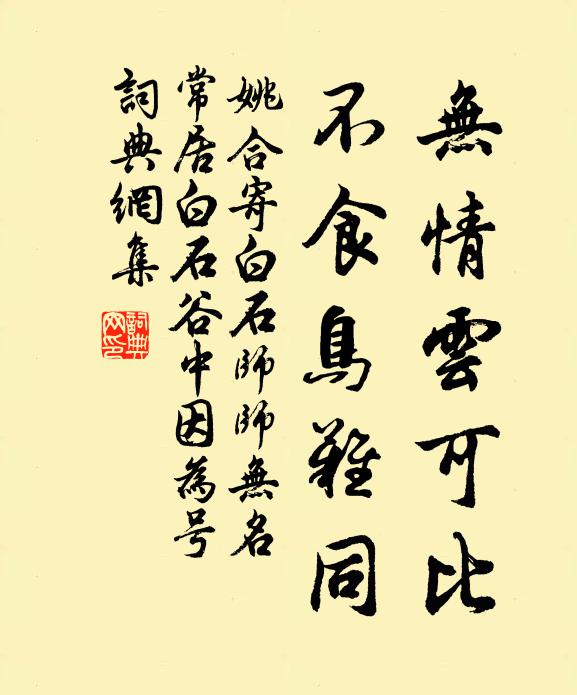 無情雲可比
不食鳥難同
姚合寄白石師師無名
常居白石谷中因為号
詞典網集
詞典网印